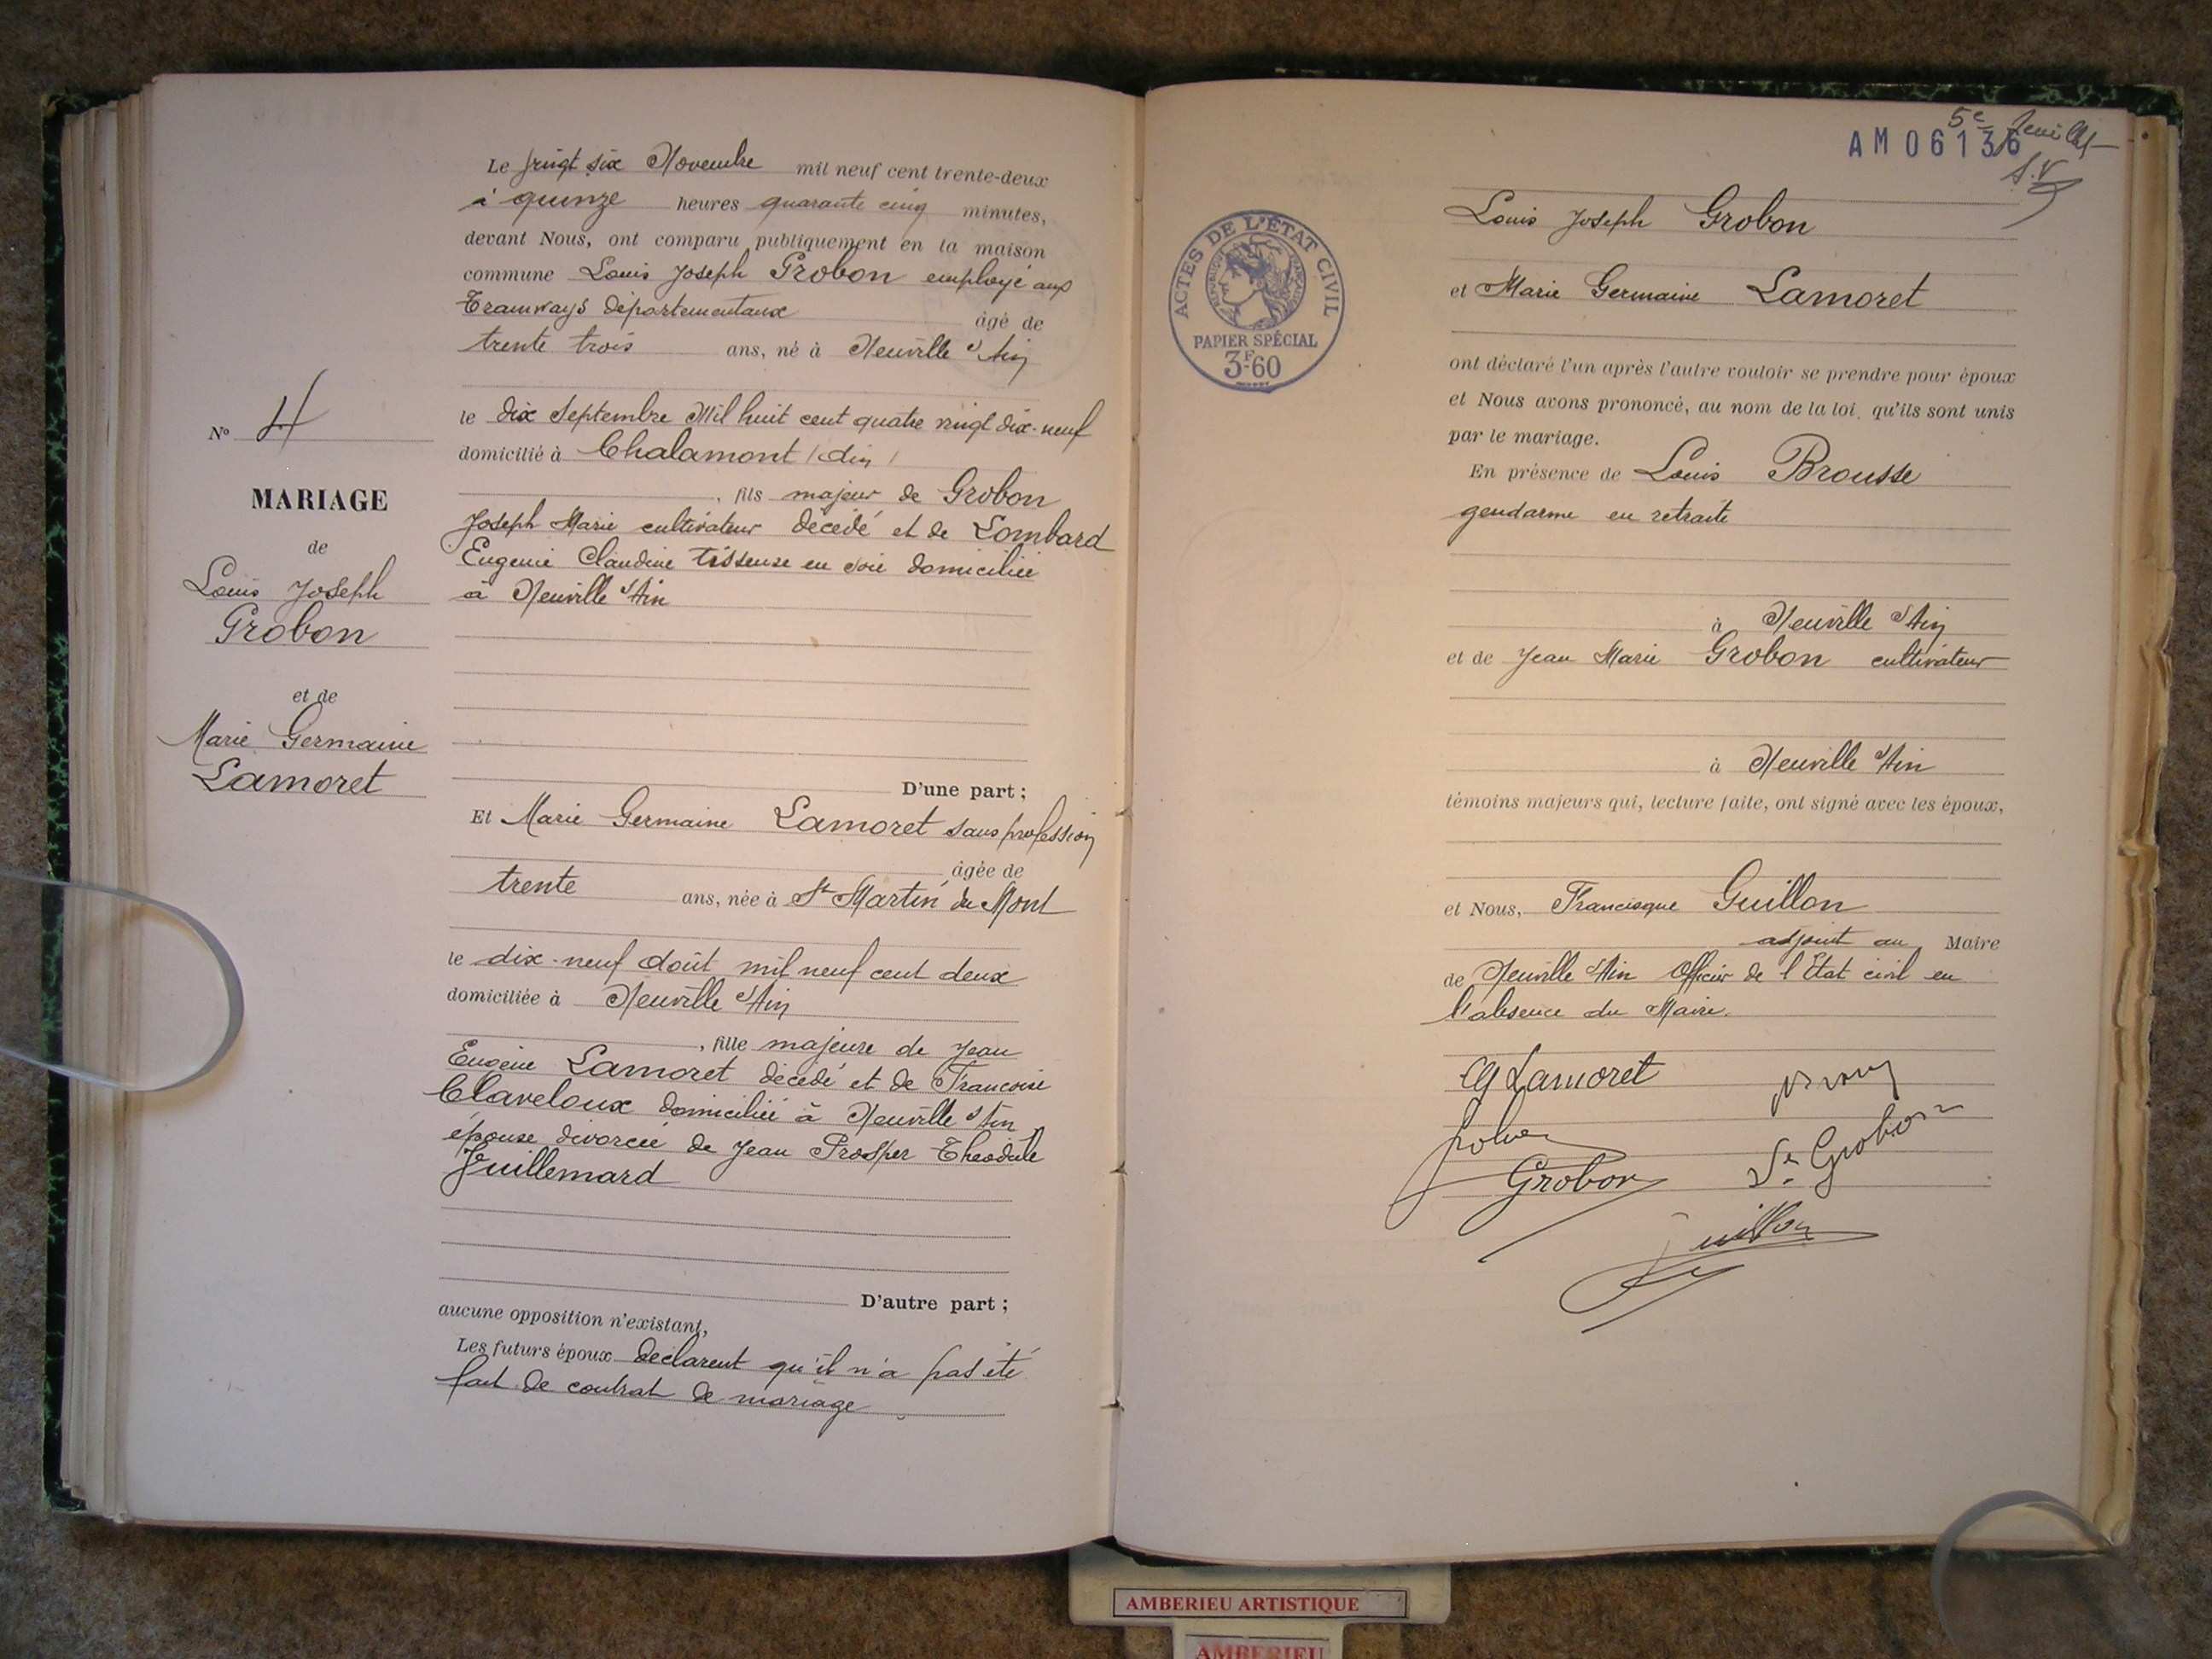 N° 4
MARIAGE
de
Louis Joseph
Grobon
et de
Marie Germaine
Lamoret
Le vingt six Novembre mil neuf cent trente-deux
à quinze heures quarante cinq minutes,
devant Nous, ont comparu publiquement en la maison
commune Louis Joseph Grobon employé aux
Tramways départementaux âgé de
trente trois ans, né à Neuville s/Ain
le dix Septembre Mil huit cent quatre vingt dix-neuf
domicilié à Chalamont (Ain)
, fils majeur de Grobon
Joseph Marie cultivateur décédé et de Lombard
Eugenie Claudine tisseuse en soie domiciliée
à Neuville s/Ain
D'une part ;
Et Marie Germaine Lamoret sans profession
âgée de
trente ans, née à St Martin du Mont
le dix-neuf Août mil neuf cent deux
domiciliée à Neuville s/Ain
, fille majeure de Jean
Eugène Lamoret décédé et de Francoise
Claveloux domiciliée à Neuville s/Ain
épouse divorcée de Jean Prosper Theodule
Juillemard
D'autre part ;
aucune opposition n'existant,
Les futurs époux declarent qu'il n'a pas été
fait de contrat de mariage
5e feuillet
AM06136
Louis Joseph Grobon
et Marie Germaine Lamoret
ont déclaré l'un après l'autre vouloir se prendre pour époux
et Nous avons prononcé, au nom de la loi, qu'ils sont unis
par le mariage.
En présence de Louis Brousse
gendarme en retraite
à Neuville s/Ain
et de Jean Marie Grobon cultivateur
à Neuville s/Ain
témoins majeurs qui, lecture faite, ont signé avec les époux,
et Nous, Francisque Guillon
adjoint au Maire
de Neuville s/Ain Officier de l'Etat civil en
l'absence du Maire.
G Lamoret
Grobon
Grobon
Guillon
ACTES DE L'ETAT CIVIL
REPUBLIQUE FRANÇAISE
PAPIER SPÉCIAL
3F60
AMBERIEU ARTISTIQUE
AMBERIEU